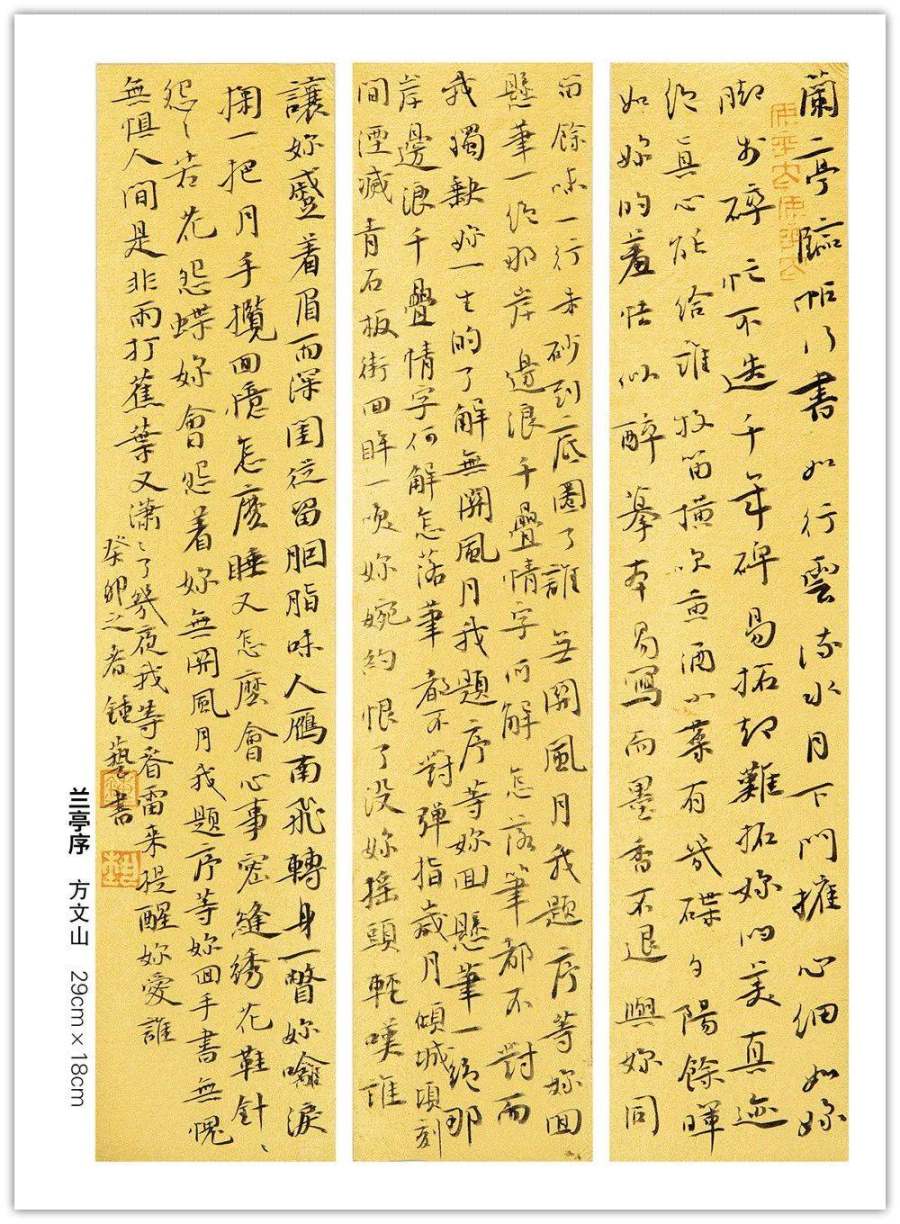 蘭亭臨帖行書如行雲流水月下門推心細如妳
脚步碎忙不迭千年碑易拓却難拓妳的美真迹
絕真心能給誰牧笛橫吹黃酒小菜有幾碟夕陽餘暉
如妳的羞怯似醉摹本易寫而墨香不退與妳同
留餘味一行朱砂到底圈了誰無關風月我題序等妳回
懸筆一絕那岸邊浪千疊情字何解怎落筆都不對而
我獨缺妳一生的了解無關風月我題序等妳回懸筆一絕那
岸邊浪千疊情字何解怎落筆都不對彈指歲月傾城頃刻
間湮滅青石板街回眸一笑妳婉約恨了没妳摇頭輕嘆誰
讓妳蹙着眉而深閨徒留胭脂味人雁南飛轉身一瞥妳噙淚
掬一把月手攬回憶怎麼睡又怎麼會心事密縫绣花鞋針、
怨、若花怨蝶妳會怨着妳無關風月我題序等妳回手書無愧
無惧人間是非雨打蕉葉又瀟、了幾夜我等春雷来提醒妳愛誰
癸卯之春鍾藝書
兰亭序 方文山 29cm×18cm